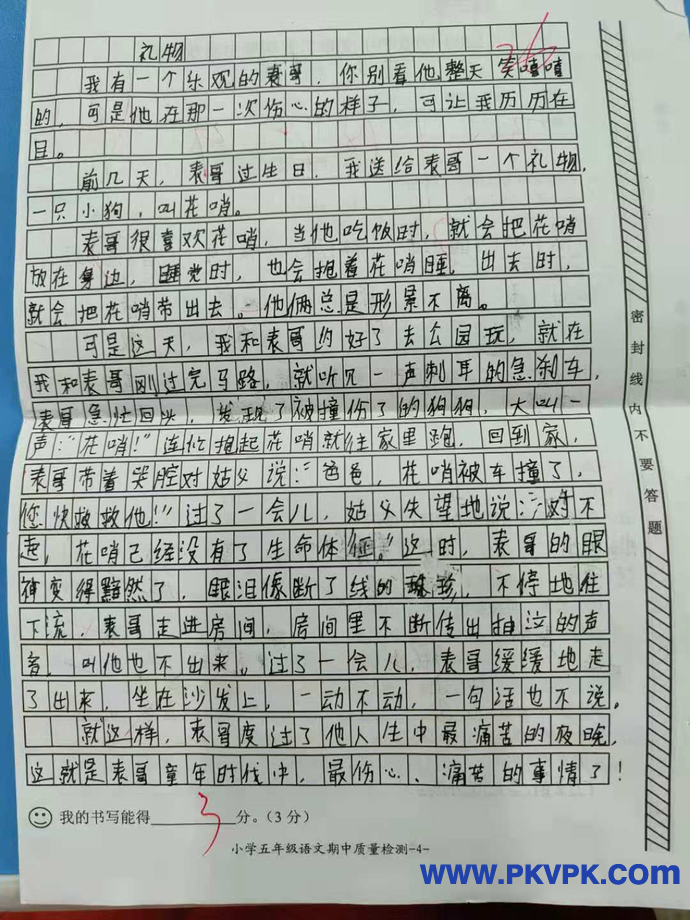 礼物
我有一个乐观的表哥，你别看他整天笑嘻嘻
的，可是他在那一次伤心的样子，可让我历历在
目。
前几天，表哥过生日，我送给表哥一个礼物，
一只小狗，叫花哨。
表哥很喜欢花哨，当他吃饭时，就会把花哨
放在身边，睡觉时，也会抱着花哨睡，出去时，
就会把花哨带出去。他俩总是形景不离。
可是这天，我和表哥约好了去公园玩，就在
我和表哥刚过完马路，就听见一声刺耳的急刹车，
表哥急忙回头，发现了被撞伤了的狗狗，大叫一
声：“花哨！”连忙抱起花哨就往家里跑，回到家，
表哥带着哭腔对姑父说：“爸爸，花哨被车撞了，
您快救救他！”过了一会儿，姑父失望地说：“对不
起，花哨已经没有了生命体征。”这时，表哥的眼
神变得黯然了，眼泪像断了线的珠珍，不停地往
下流，表哥走进房间，房间里不断传出抽泣的声
音，叫他也不出来。过了一会儿，表哥缓缓地走
了出来，坐在沙发上，一动不动，一句话也不说。
就这样，表哥度过了他人生中最痛苦的夜晚，
这就是表哥童年时代中，最伤心、痛苦的事情了！
我的书写能得3分。（3分）
小学五年级语文期中质量检测-4-
密封线内不要答题
www.PKVPK.com